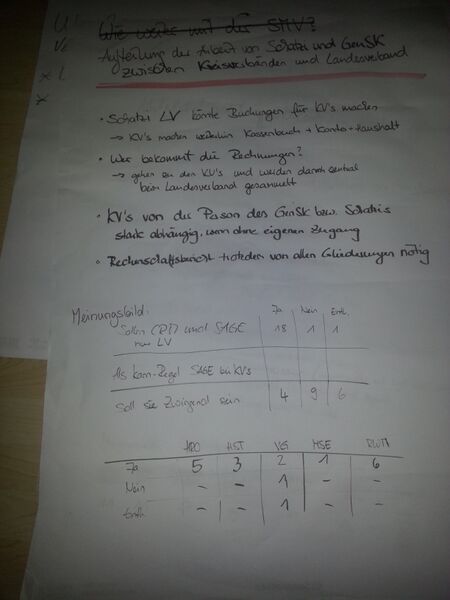 Wie weiter mit der SMV?
Aufteilung der Arbeit von Schatzi und GenSK
zwischen Kreisverbänden und Landesverband
• Schatzi LV könnte Buchungen für KV's machen
→ KV's machen weiterhin Kassenbuch + Konto + Haushalt
• Wer bekommt die Rechnungen?
→ gehen zu den KV's und werden danach zentral
beim Landesverband gesammelt
• KV's von der Person des GenSK bzw. Schatzis
stark abhängig, wenn ohne eigenen Zugang
• Rechenschaftsbericht trotzdem von allen Gliederungen nötig
Meinungsbild:
Ja Nein Enth.
Sollen und SAGE 18 1 1
nur LV
Als kann-Regel SAGE bei KVs
Soll sie zwingend sein 4 9 6
HRO HST VG MSE
Ja 5 3 2 1 6
Nein – – 1 – –
Enth. – – 1 – –